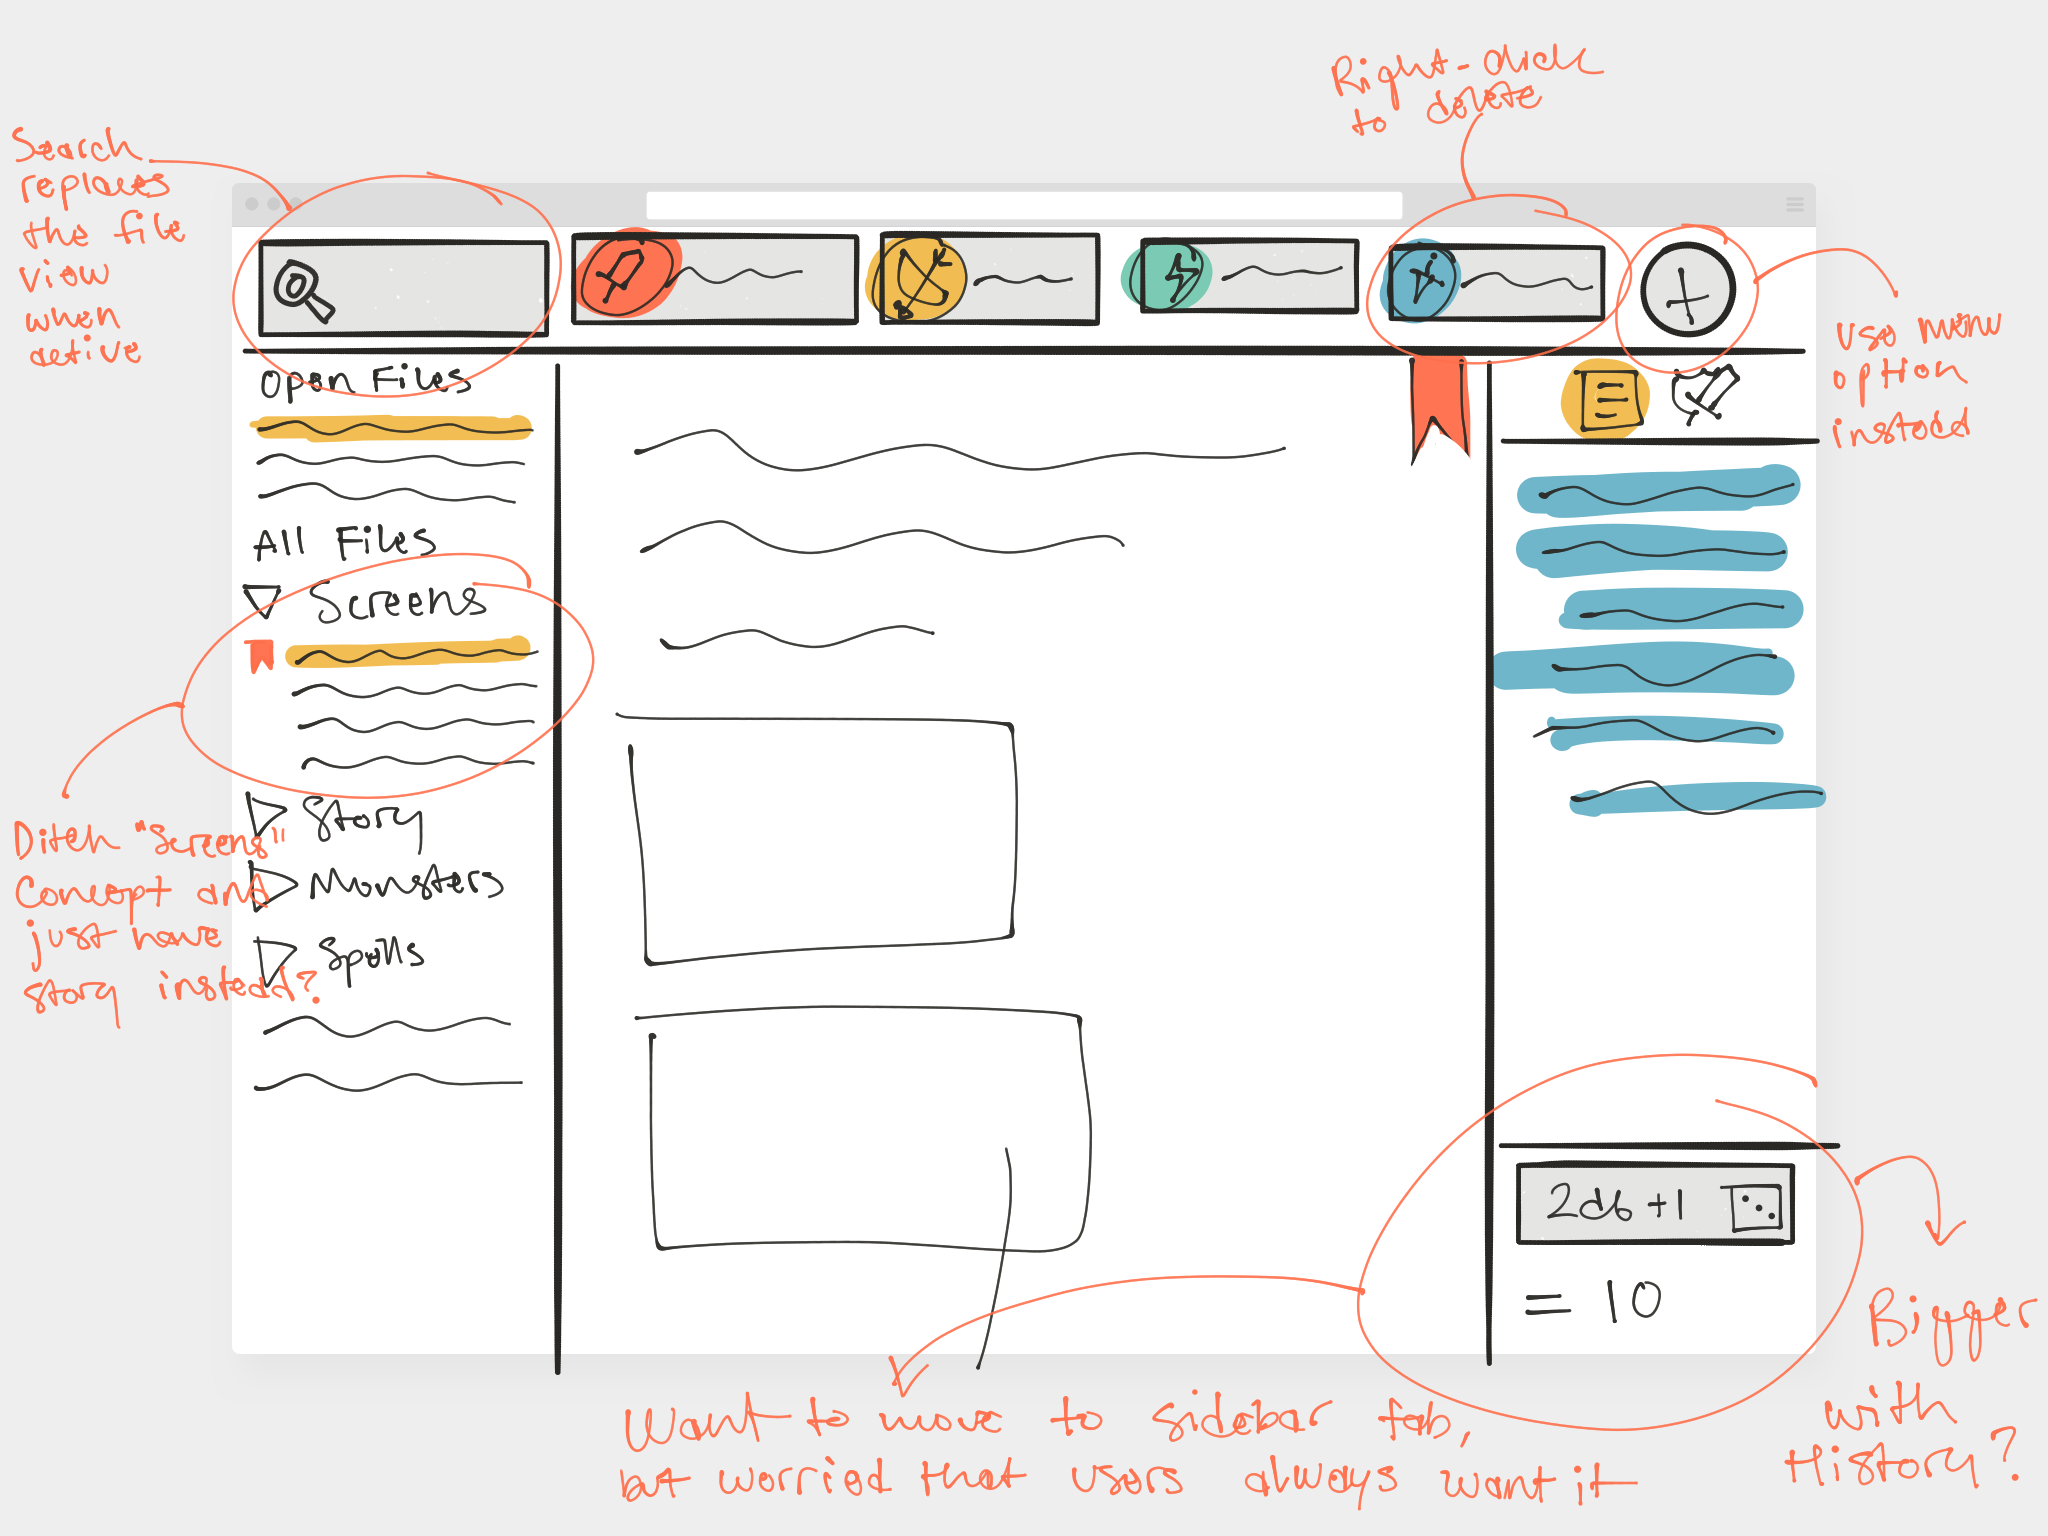 Right-click
to delete
Search
replaces
the file
view
when
active
Use menu
option
instead
Open Files
All Files
Screens
Story
Monsters
Spells
Ditch "Screens"
Concept and
just have
story instead?
2d6 +1
= 10
Bigger
with
History?
Want to move to sidebar tab,
but worried that users always want it